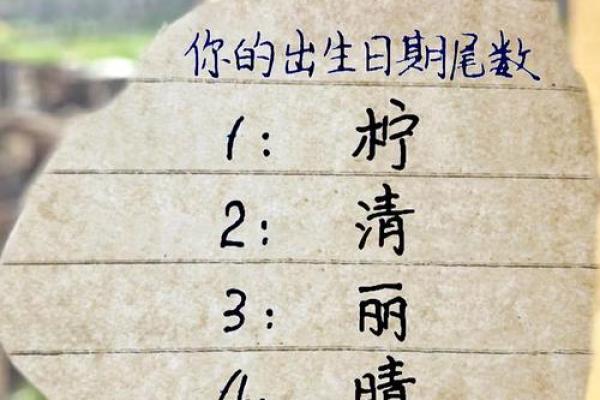 你的出生日期尾数
1: 柠
2: 清
3: 丽
4: 晴